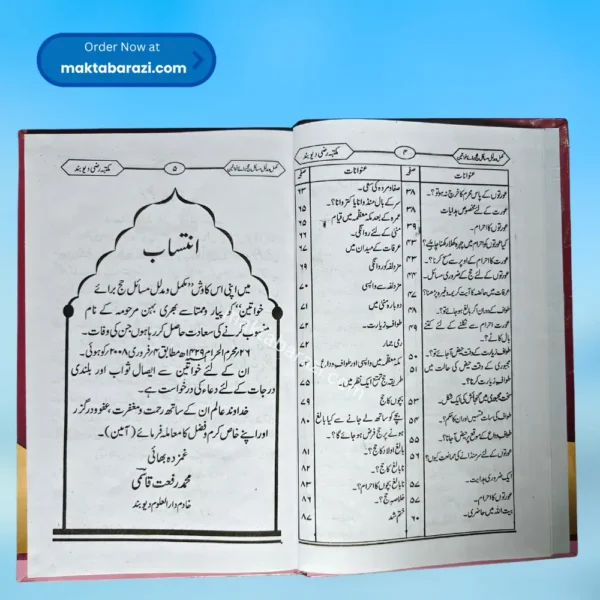 Order Now at
maktabarazi.com
مکتبہ رضی دیوبند
۵
مکمل مدلل مسائل حج برائے خواتین
انتساب
میں اپنی اس کاوش ”مکمل و مدلل مسائل حج برائے
خواتین“ کو پیار و ممتا سے بھری بہن مرحومہ کے نام
منسوب کرنے کی سعادت حاصل کر رہا ہوں جن کی وفات۔
۲۶ محرم الحرام ۱۴۲۹ھ مطابق ۴ فروری ۲۰۰۸ء کو ہوئی۔
ان کے لئے خواتین سے ایصال ثواب اور بلندی
درجات کے لئے دعاء کی درخواست ہے۔
خداوند عالم ان کے ساتھ رحمت و مغفرت، عفو و درگزر
اور اپنے خاص کرم و فضل کا معاملہ فرمائے (آمین)۔
غمزدہ بھائی
محمد رفعت قاسمی
خادم دارالعلوم دیوبند
مکمل مدلل مسائل حج برائے خواتین
۴
مکتبہ رضی دیوبند
عنوانات صفحہ
عورتوں کے پاس محرم کا خرچ نہ ہو تو؟۔ ۳۸
عورت کے لئے مخصوص ہدایات ۳۸
عورتوں کا احرام۔ ۳۹
کیا عورتوں کو احرام میں چہرہ کھلا رکھنا چاہیے؟ ۴۳
عورت کا احرام کے اوپر سے مسح کرنا؟۔ ۴۳
عورتوں کے لئے حج کے ضروری مسائل۔ ۴۴
عرفات میں حائضہ کا آیت کریمہ وغیرہ پڑھنا؟ ۴۷
طواف کے دوران اگر بالغ ہو جائے تو؟۔
عورت احرام سے نکلنے کے لئے کتنے ۴۹
بال کاٹے؟۔
طواف زیارت کے وقت حیض آجائے تو؟۔ ۵۰
سخت مجبوری میں حیض کی حالت میں ۵۱
طواف زیارت کرنا؟۔
سخت مجبوری میں گنجائش کی ایک شکل۔ ۵۳
طواف کی سات قسمیں اور ان کا حکم۔ ۵۴
طواف وداع کے موقع پر حیض آجانا؟۔ ۵۵
عورتوں کے لئے سر منڈانے کی ممانعت کیوں؟ ۵۶
ایک ضروری ہدایت۔
عورتوں کا احرام۔ ۵۷
بیت اللہ میں حاضری۔ ۶۰
عنوانات صفحہ
صفا و مروہ کی سعی۔ ۶۳
سر کے بال منڈوانا یا کتروانا؟۔ ۶۵
عمرہ کے بعد مکہ معظمہ میں قیام ۶۵
منیٰ کے لئے روانگی۔
عرفات کے میدان میں
مزدلفہ کو روانگی
مزدلفہ سے واپسی
دوبارہ منیٰ میں
طواف زیارت۔ ۷۲
رمی جمار ۷۲
مکہ معظمہ میں واپسی اور طواف وداع
طریقہ حج تمتع ایک نظر میں ۷۵
بچوں کا حج
بچے کو ساتھ لے جانے سے کیا بالغ ۸۰
ہونے پر حج فرض ہو جائے گا؟۔
بالغ اولاد کا حج؟۔ ۸۱
نابالغ کا حج؟۔ ۸۲
نابالغ بچوں کا احرام؟۔ ۸۳
خلاصہ حج؟۔ ۸۶
ختم شد ۸۷